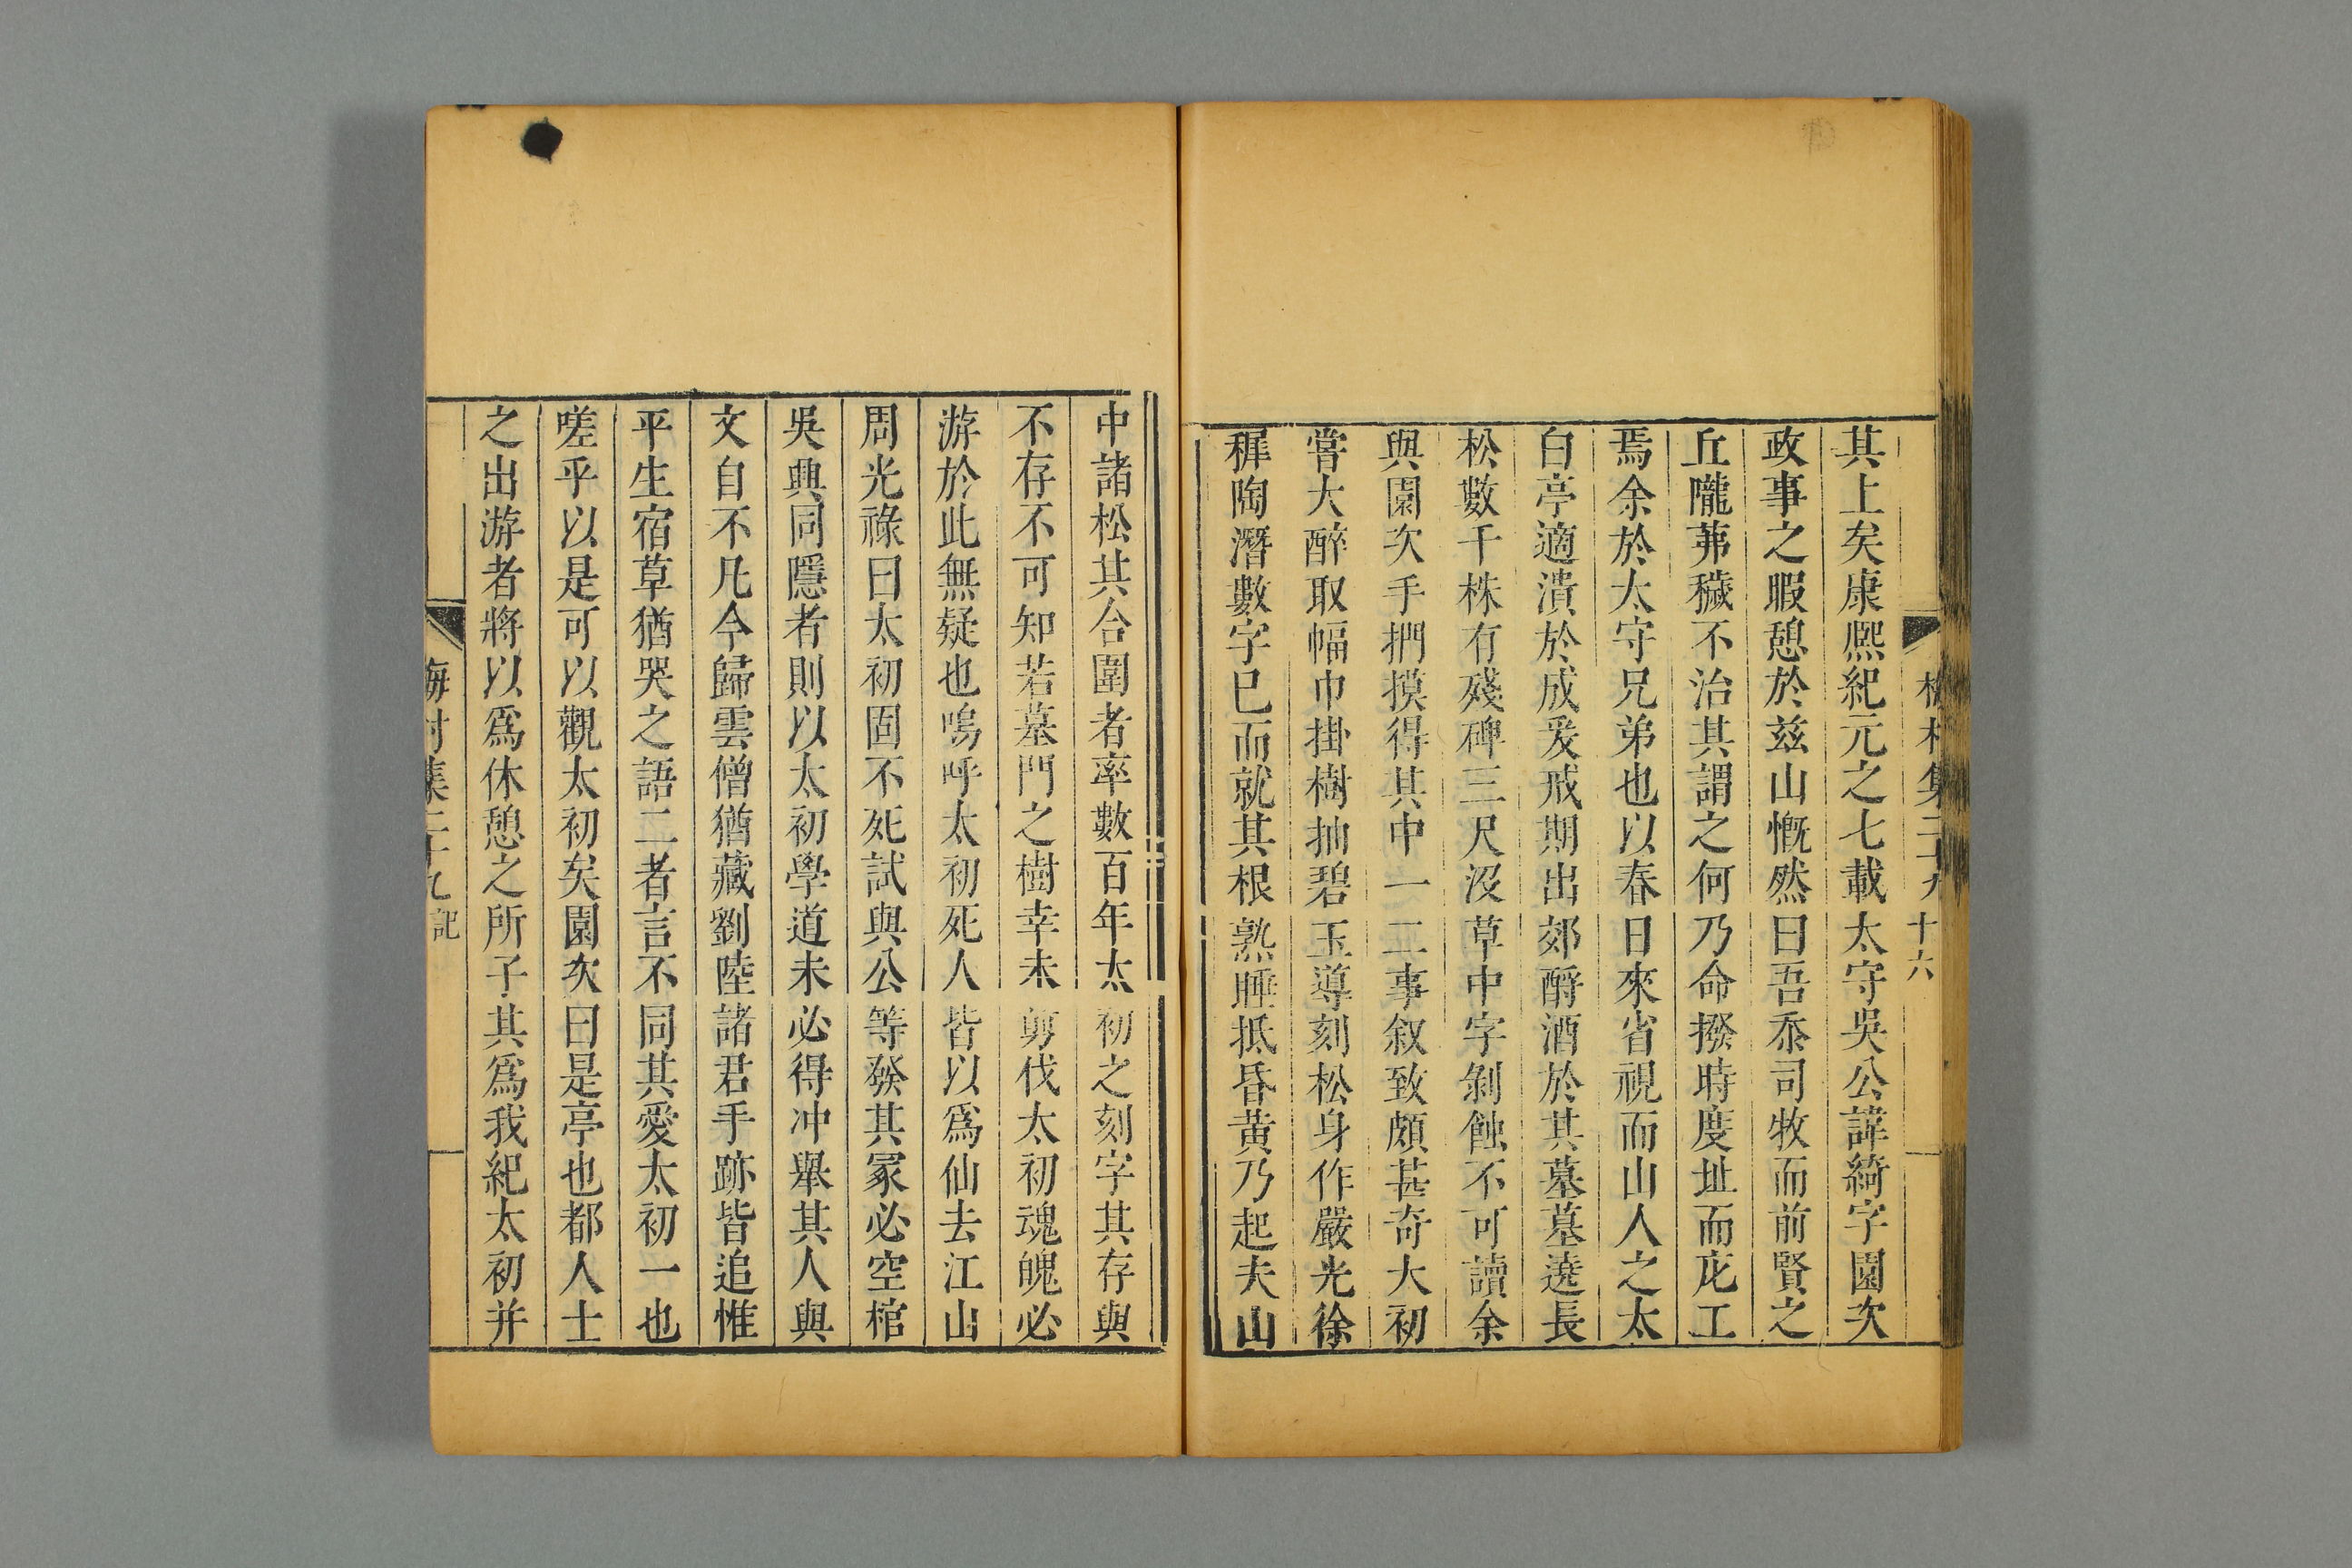 其上矣康熈紀元之七載太守吳公諱綺字園次
政事之暇憩於兹山慨然曰吾忝司牧而前賢之
丘隴茀穢不治其謂之何乃命撥時度址而庀工
焉余於太守兄弟也以春日來省視而山人之太
白亭適潰於成爰戒期出郊酹酒於其墓墓遶長
松數千株有殘碑三尺沒草中字剝蝕不可讀余
與園次手捫摸得其中一二事叙致頗甚奇大初
嘗大醉取幅巾掛樹抽碧玉導刻松身作嚴光徐
穉陶潛數字已而就其根熟睡抵昏黃乃起夫山
中諸松其合圍者率數百年太初之刻字其存與
不存不可知若墓門之樹幸未剪伐太初魂魄必
游於此無疑也嗚呼太初死人皆以爲仙去江山
周光祿曰太初固不死試與公等發其冢必空棺
吳興同隱者則以太初學道未必得冲舉其人與
文自不凡今歸雲僧猶藏劉陸諸君手跡皆追惟
平生宿草猶哭之語二者言不同其愛太初一也
嗟乎以是可以觀太初矣園次曰是亭也都人士
之出游者將以爲休憩之所子其爲我紀太初并
梅村集二十九 記
十六